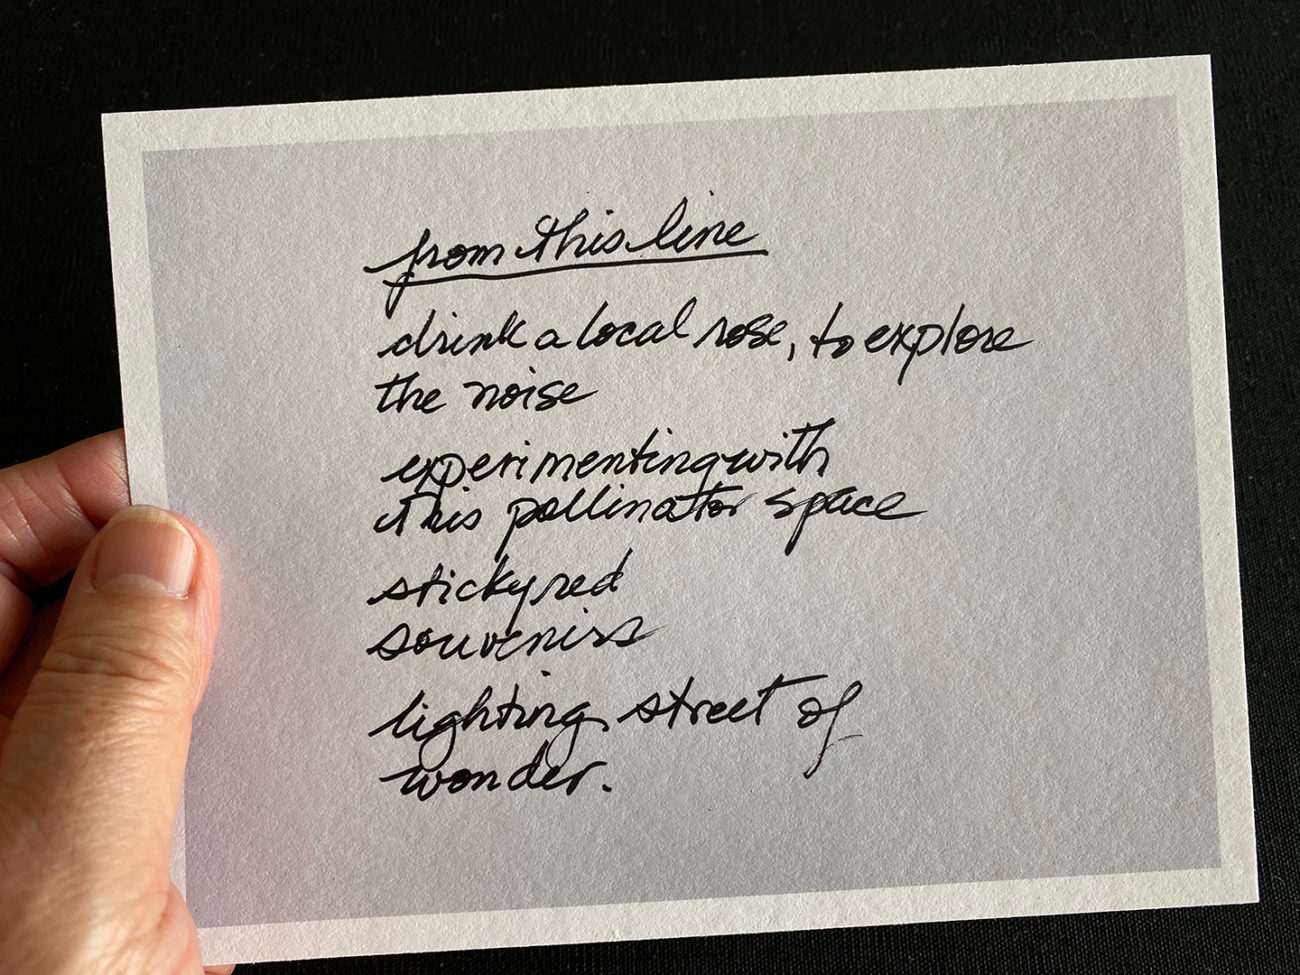 from this line
drink a local rose, to explore
the noise
experimenting with
this pollinator space
sticky red
souvenirs
lighting street of
wonder.